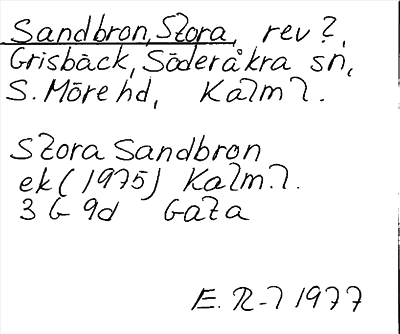 Sandbron, Stora, rev?,
Grisbäck, Söderåkra sn,
S. Möre hd, Kalm l.
Stora Sandbron
ek (1975) Kalm. l.
3 G 9d Gata
E. R-l 1977